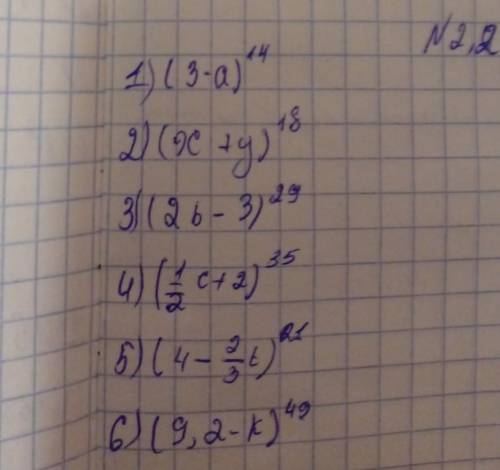 N 2,2
1) (3-a)^14
2) (x+y)^18
3) (2b-3)^29
4) (1/2 c+2)^35
5) (4-2/3 t)^21
6) (9,2-k)^49